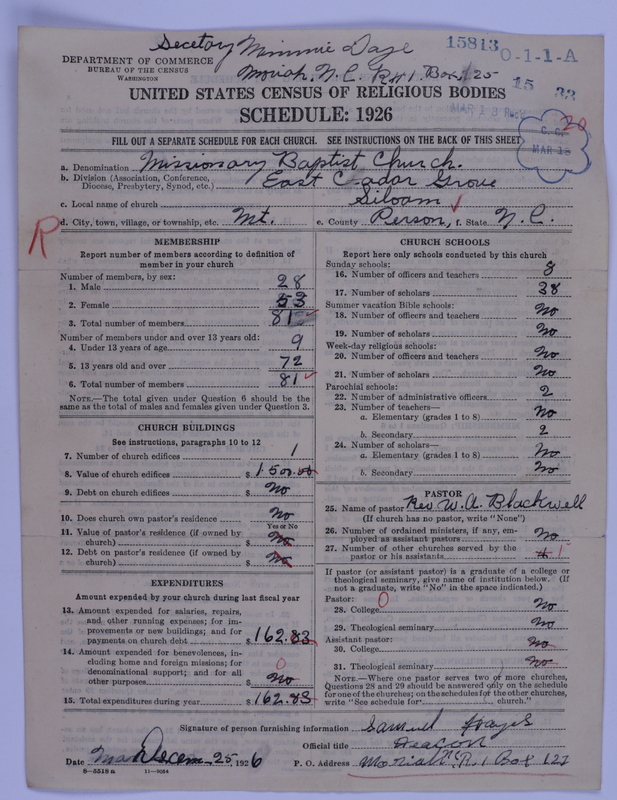 Secetory Minnie Daye
15813 0-1-1-A
DEPARTMENT OF COMMERCE
BUREAU OF THE CENSUS
WASHINGTON
Moriah, N. C. R#1. Box 125
UNITED STATES CENSUS OF RELIGIOUS BODIES
SCHEDULE: 1926
MAR 18
FILL OUT A SEPARATE SCHEDULE FOR EACH CHURCH. SEE INSTRUCTIONS ON THE BACK OF THIS SHEET
20
MAR 18
a. Denomination Missionary Baptist Church.
b. Division (Association, Conference, Diocese, Presbytery, Synod, etc.) East Cedar Grove
c. Local name of church Siloam
d. City, town, village, or township, etc. Mt. e. County Person, f. State N. C.
R
MEMBERSHIP
Report number of members according to definition of
member in your church
Number of members, by sex:
1. Male 28
2. Female 53
3. Total number of members 81
Number of members under and over 13 years old:
4. Under 13 years of age 9
5. 13 years old and over 72
6. Total number of members 81
NOTE.—The total given under Question 6 should be the
same as the total of males and females given under Question 3.
CHURCH BUILDINGS
See instructions, paragraphs 10 to 12
7. Number of church edifices 1
8. Value of church edifices $ 1500.00
9. Debt on church edifices $ No
10. Does church own pastor's residence No
Yes or No
11. Value of pastor's residence (if owned by
church) $ No
12. Debt on pastor's residence (if owned by
church) $ No
EXPENDITURES
Amount expended by your church during last fiscal year
13. Amount expended for salaries, repairs,
and other running expenses; for im-
provements or new buildings; and for
payments on church debt $ 162.83
14. Amount expended for benevolences, in-
cluding home and foreign missions; for
denominational support; and for all
other purposes $ No
0
15. Total expenditures during year $ 162.83
CHURCH SCHOOLS
Report here only schools conducted by this church
Sunday schools:
16. Number of officers and teachers 8
17. Number of scholars 38
Summer vacation Bible schools:
18. Number of officers and teachers No
19. Number of scholars No
Week-day religious schools:
20. Number of officers and teachers No
21. Number of scholars No
Parochial schools:
22. Number of administrative officers 2
23. Number of teachers—
a. Elementary (grades 1 to 8) No
b. Secondary 2
24. Number of scholars—
a. Elementary (grades 1 to 8) No
b. Secondary No
PASTOR
25. Name of pastor Rev W. A. Blackwell
(If church has no pastor, write "None")
26. Number of ordained ministers, if any, em-
ployed as assistant pastors No
27. Number of other churches served by the
pastor or his assistants 1
If pastor (or assistant pastor) is a graduate of a college or
theological seminary, give name of institution below. (If
not a graduate, write "No" in the space indicated.)
Pastor: 0
28. College No
29. Theological seminary No
Assistant pastor:
30. College No
31. Theological seminary No
NOTE.—Where one pastor serves two or more churches,
Questions 28 and 29 should be answered only on the schedule
for one of the churches; on the schedules for the other churches,
write "See schedule for church."
Signature of person furnishing information Samuel Hayes
Official title Deacon
Date Decem. 25 1926 P. O. Address Moriah N.C. R. 1 Box 127
8—5518a 11—9084